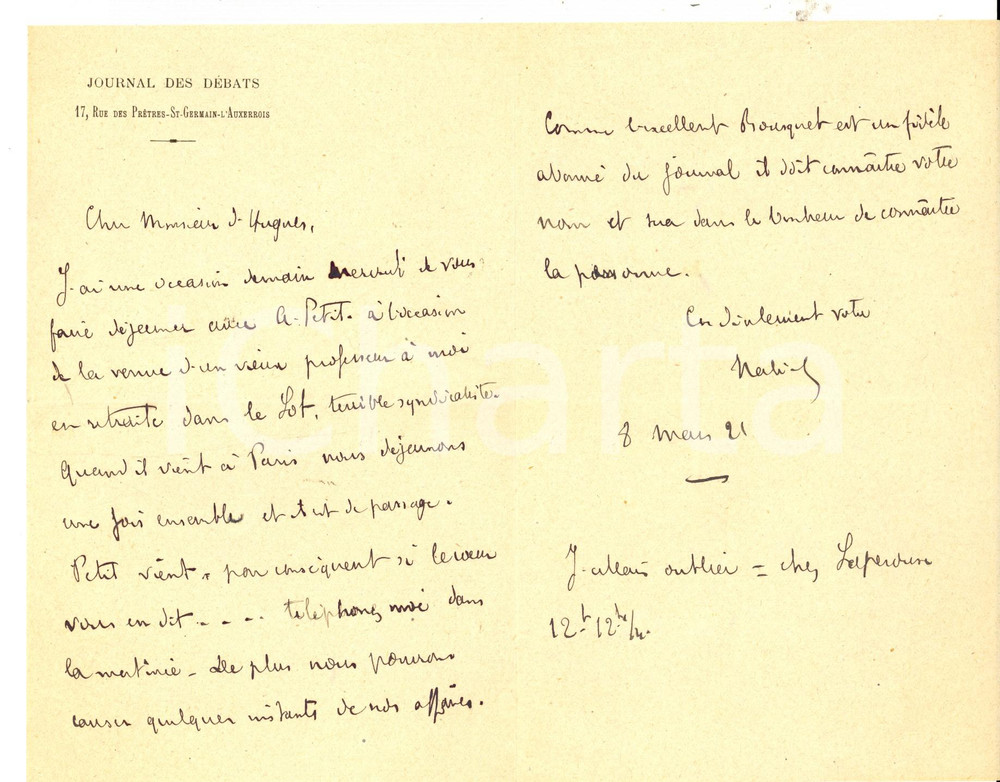 JOURNAL DES DÉBATS
17, RUE DES PRÊTRES-ST-GERMAIN-L'AUXERROIS
Cher Monsieur d'Hugues,
J'ai une occasion demain mercredi de vous
faire déjeuner avec A. Petit. à l'occasion
de la venue d'un vieux professeur à moi
en retraite dans le Lot, terrible syndicaliste.
Quand il vient à Paris nous déjeunons
une fois ensemble et il est de passage.
Petit vient, par conséquent si le cœur
vous en dit . . . . téléphonez moi dans
la matinée _ De plus nous pourrons
causer quelques instants de nos affaires.
Comme l'excellent Bousquet est un fidèle
abonné du journal il doit connaître votre
nom et sera dans le bonheur de connaître
la personne.
Cordialement votre
8 mars 21
J'allais oublier = chez Laperouse
12h 12h 1/4.
iCharta